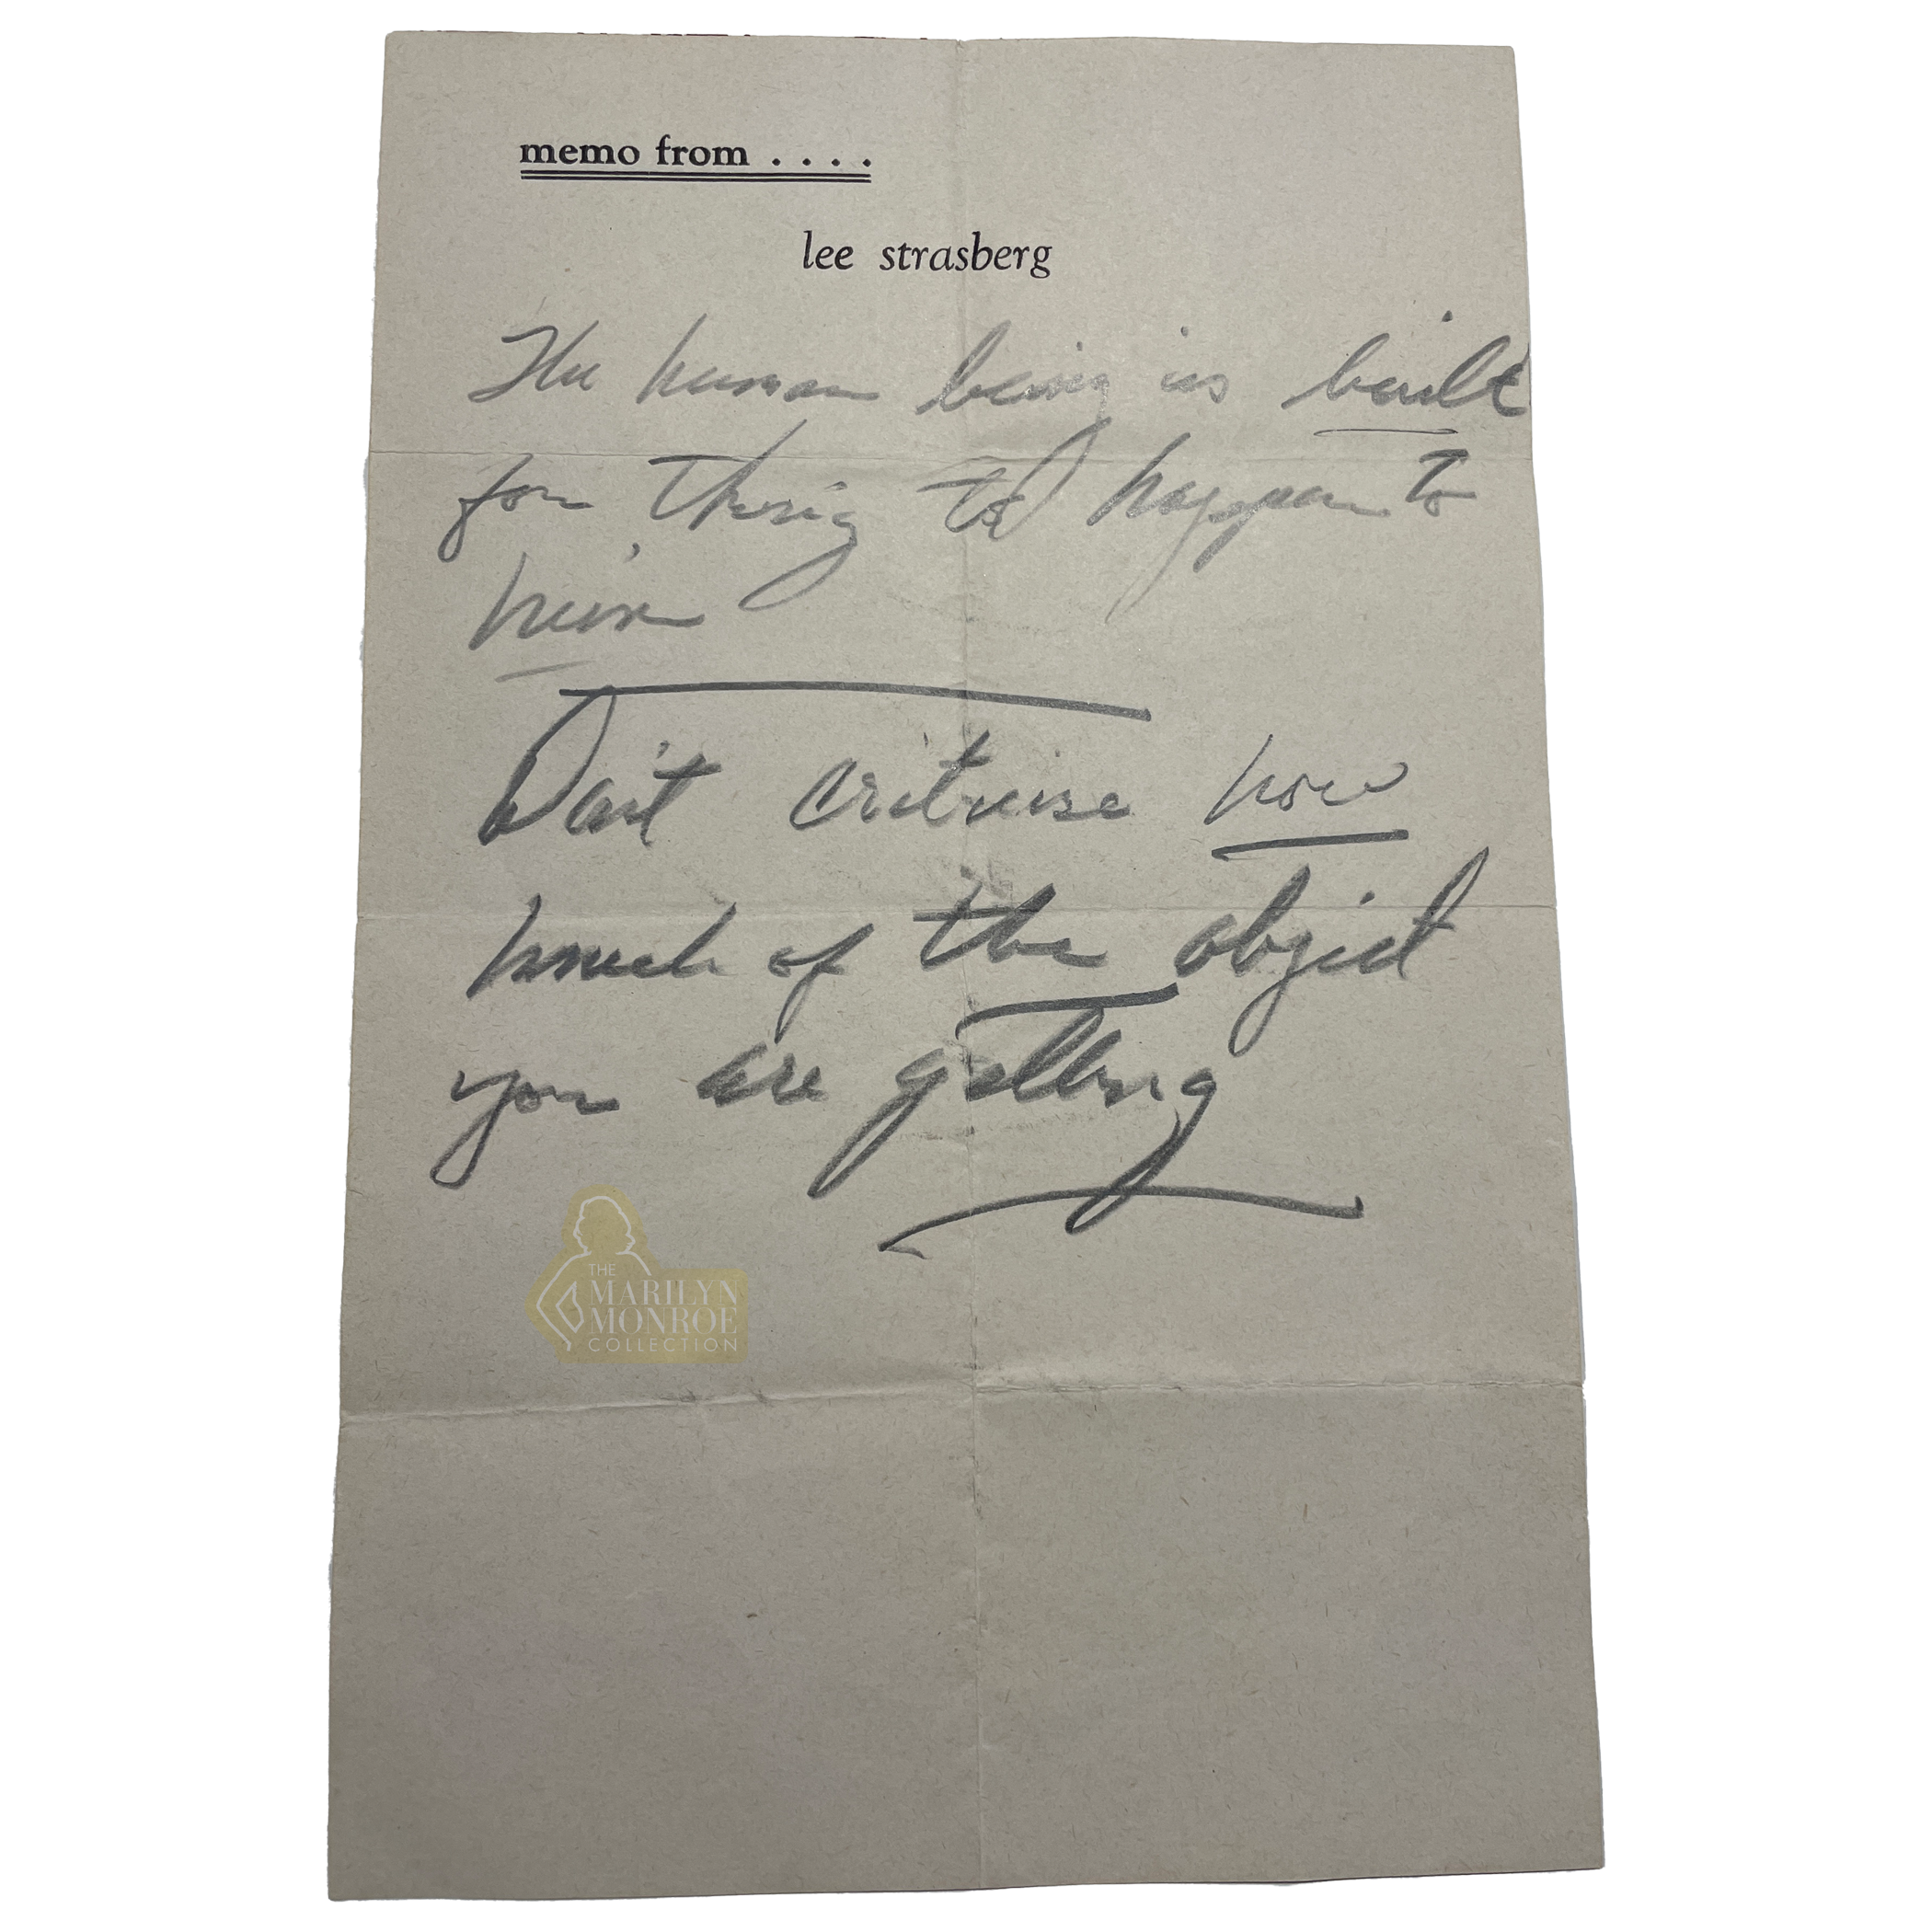 memo from . . . .
lee strasberg
The human being is built
for thing to happen to
him
Don't criticise how
much of the object
you are getting
THE
MARILYN
MONROE
COLLECTION